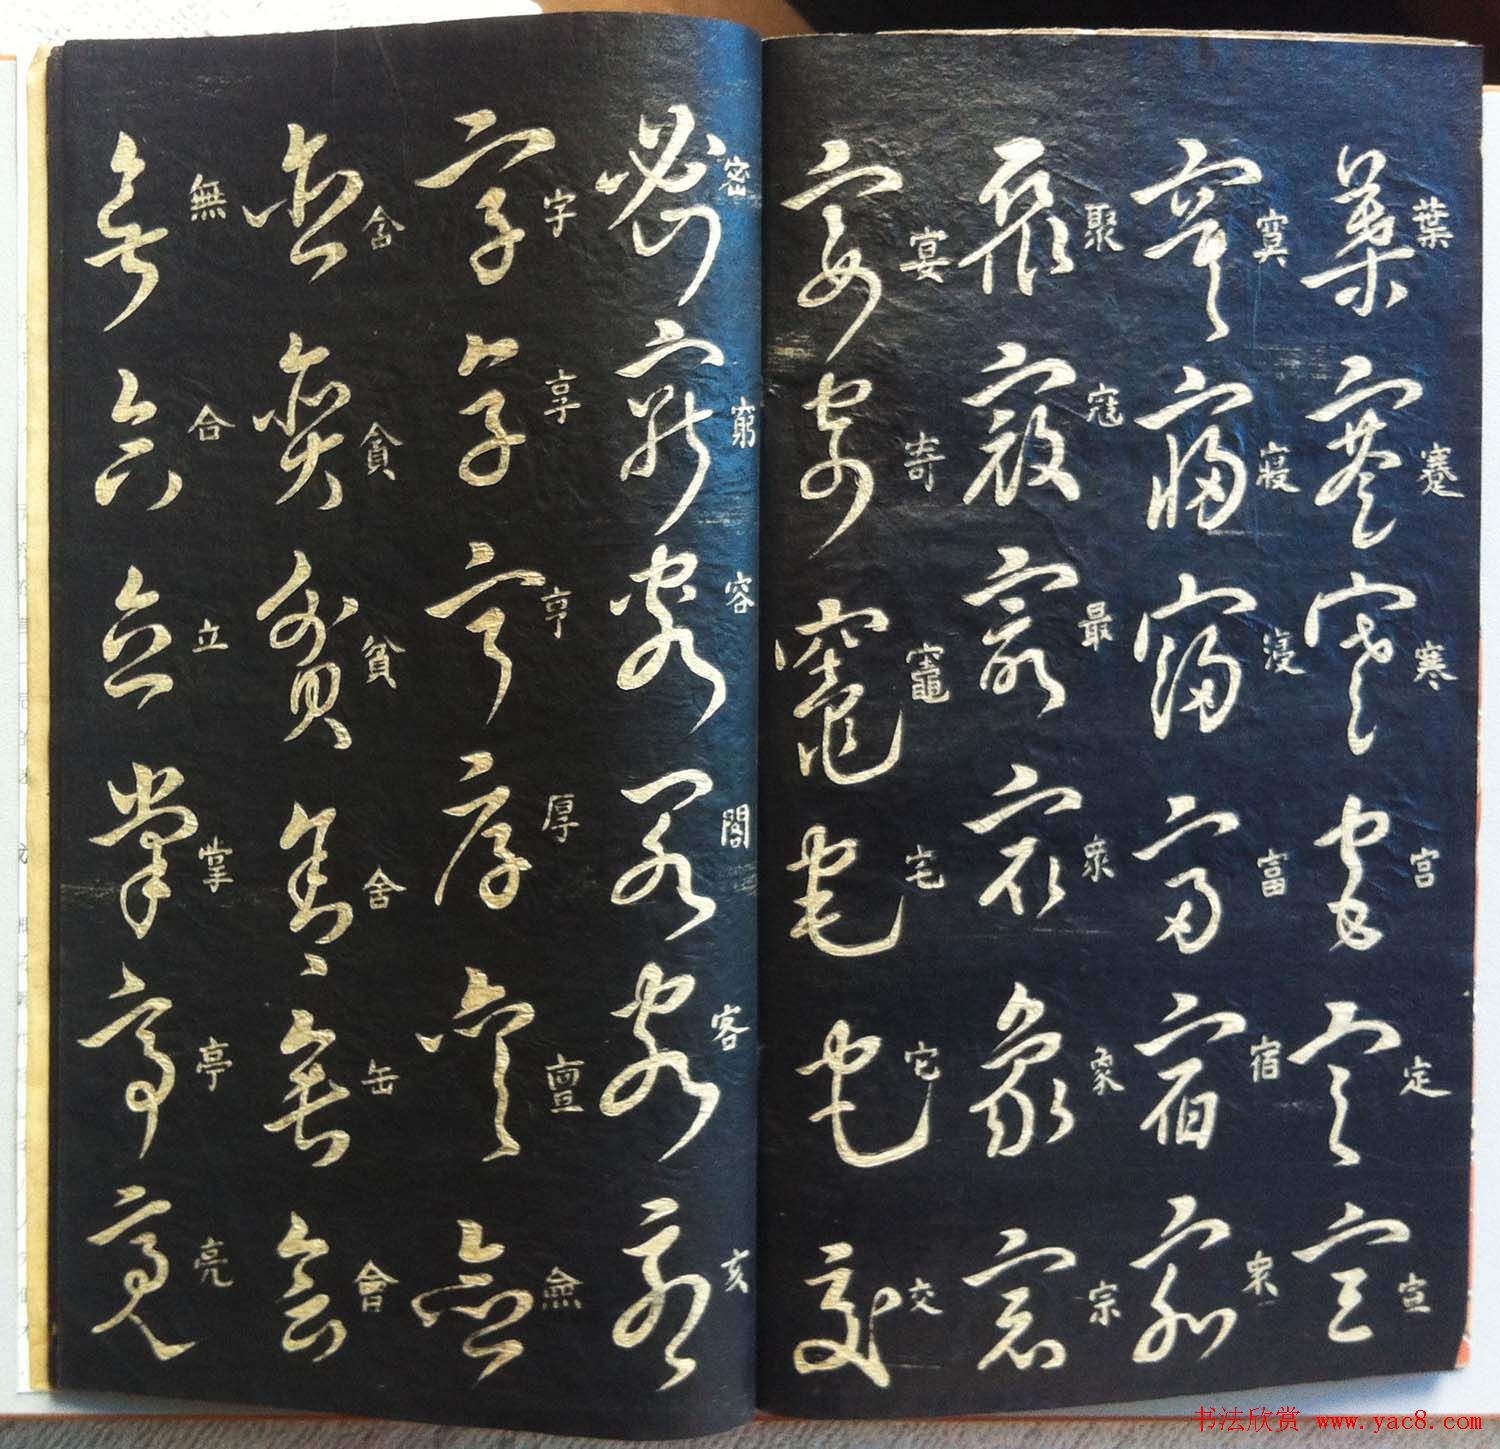 葉蹇寒宫定宣
寞寢寖富宿
聚寇最衆象宗
宴寄竈宅它交
密窮容閣客亥
字享亨厚亶僉
含貪貧舍缶會
無合立掌亭亮
书法欣赏 www.yac8.com